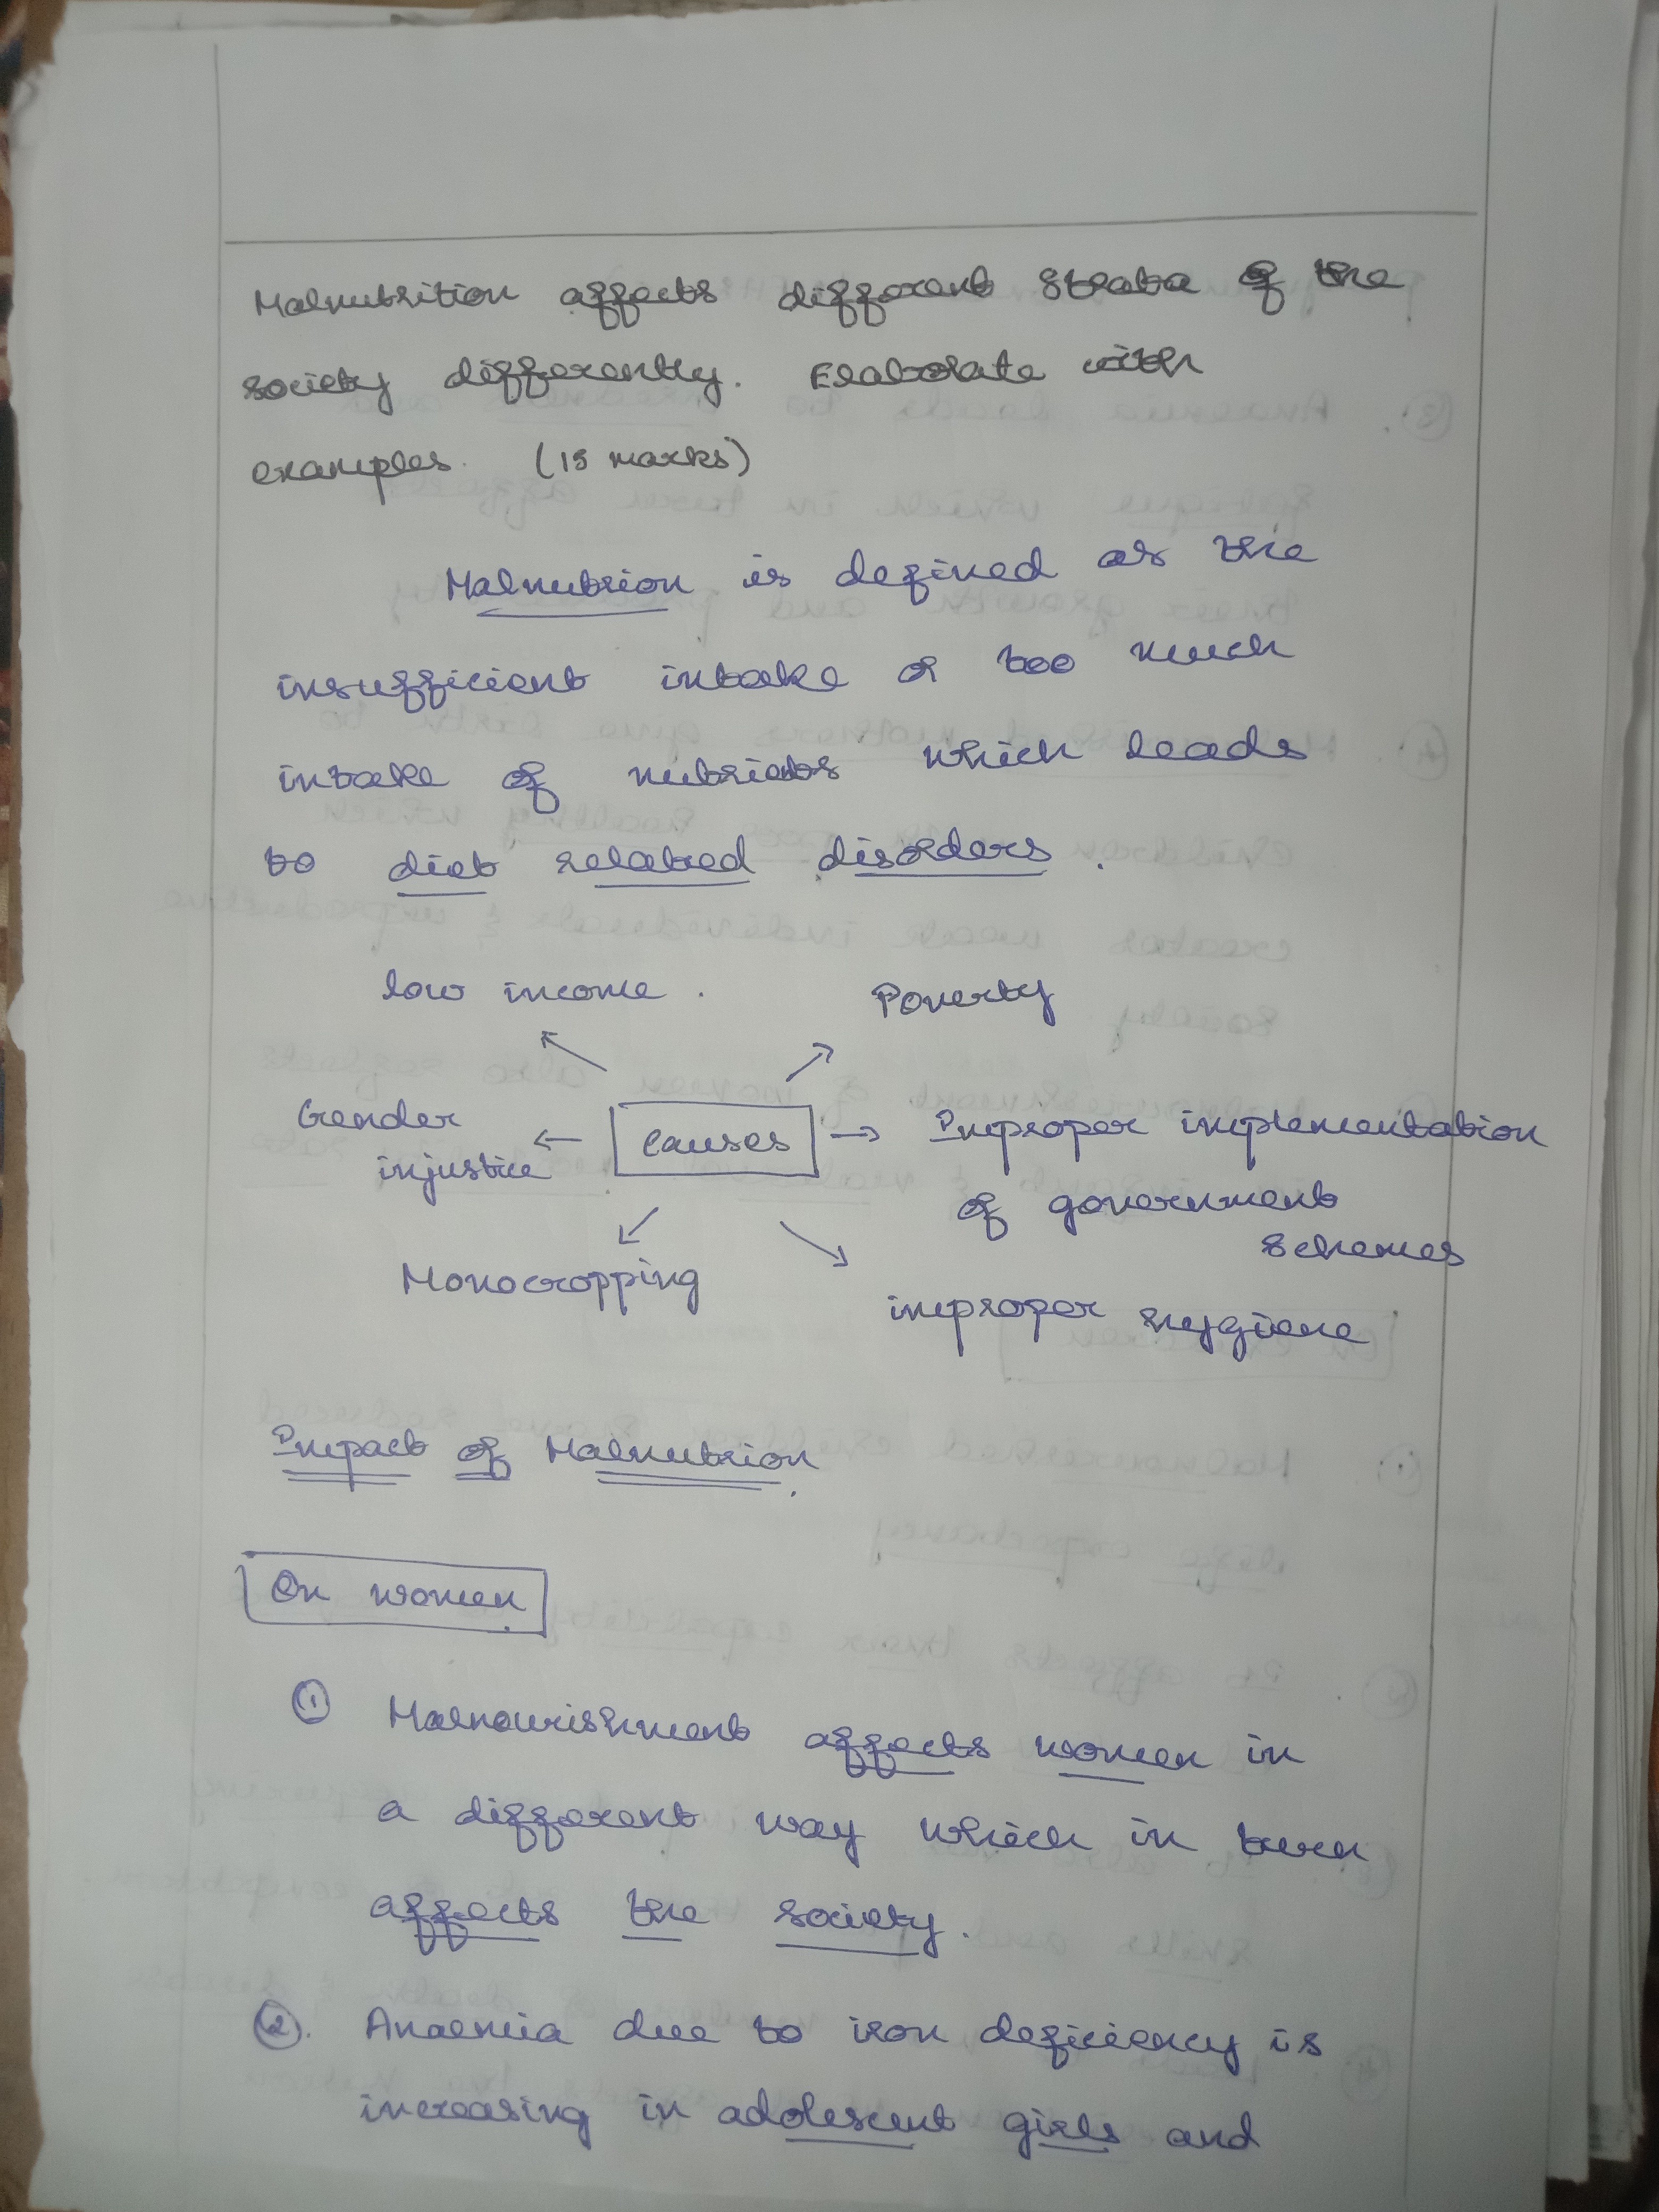 Malnutrition affects different strata of the
society differently. Elaborate with
examples. (15 marks)
Malnutrion is defined as the
insufficient intake or too much
intake of nutrients which leads
to diet related disorders.
low income.
Poverty
Gender
injustice
causes
Improper implementation
of government
schemes
Monocropping
improper hygiene
Impact of Malnutrion
On women
① Malnourishment affects women in
a different way which in turn
affects the society.
②. Anaemia due to iron deficiency is
increasing in adolescent girls and